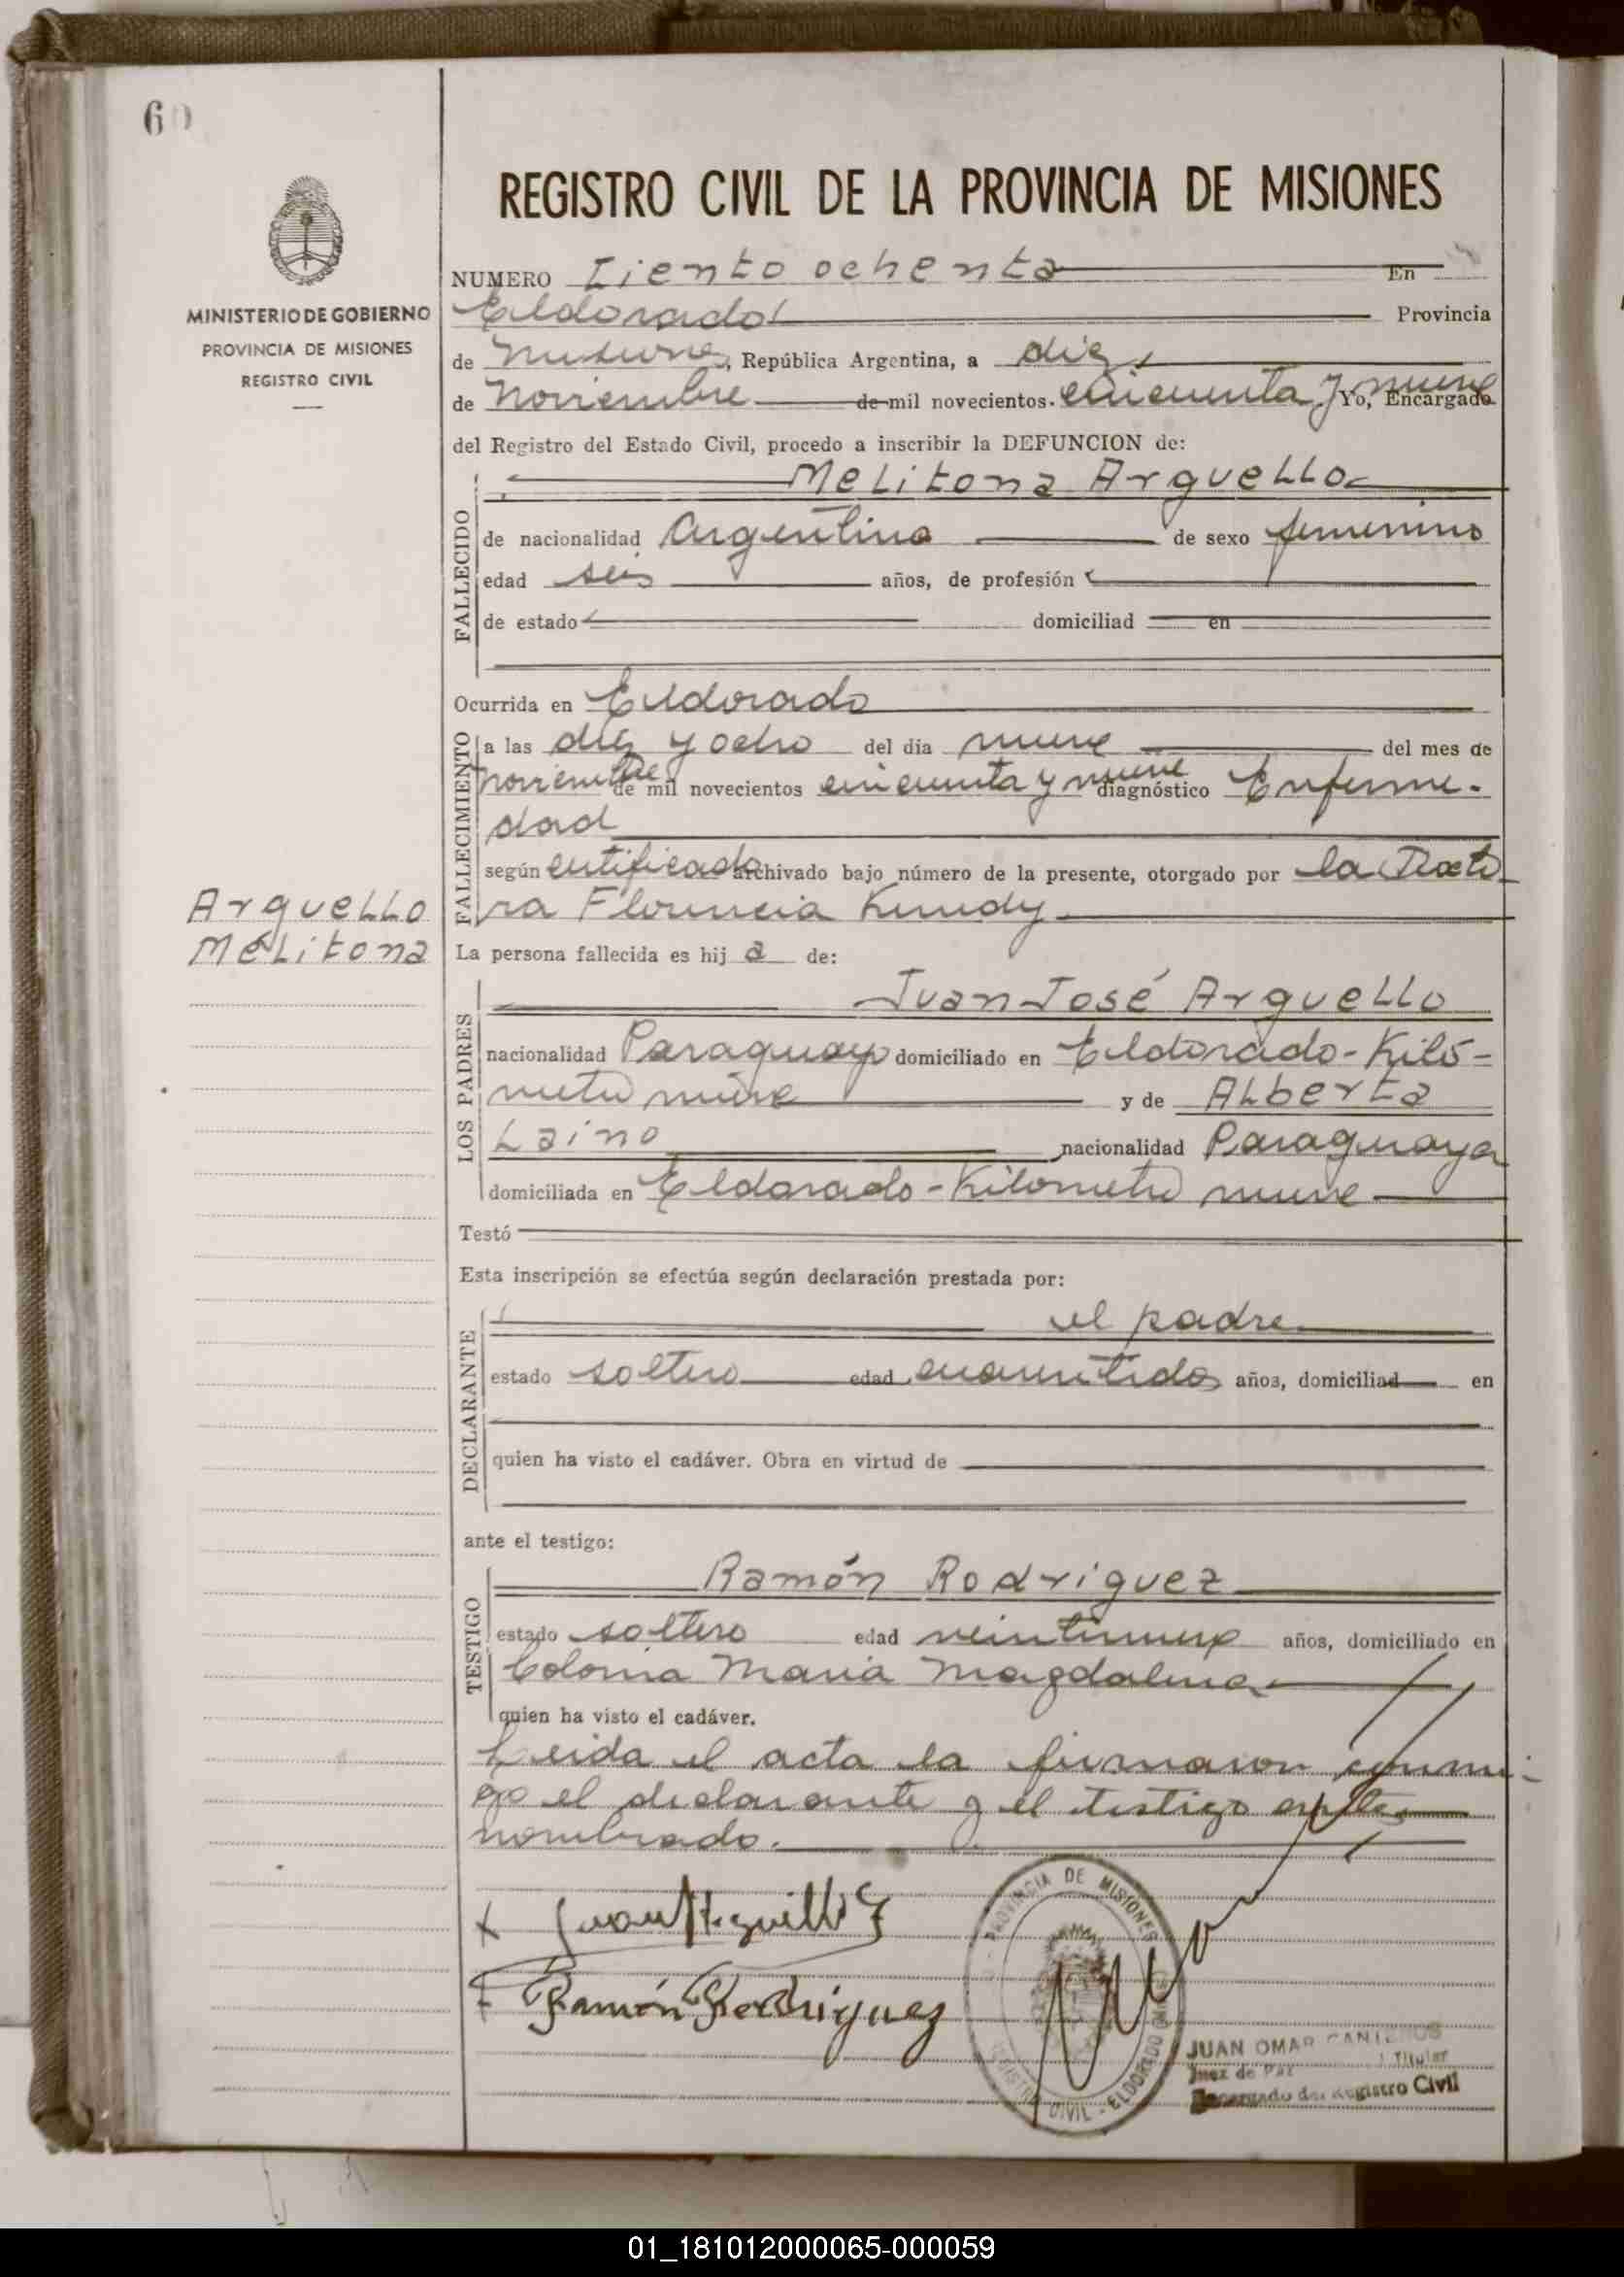 60
MINISTERIO DE GOBIERNO
PROVINCIA DE MISIONES
REGISTRO CIVIL
Arguello
Melitona
REGISTRO CIVIL DE LA PROVINCIA DE MISIONES
NUMERO Ciento ochenta En
Eldorado Provincia
de Misiones, República Argentina, a diez
de Noviembre de mil novecientos cincuenta y nueve Yo, Encargado
del Registro del Estado Civil, procedo a inscribir la DEFUNCION de:
Melitona Arguello
FALLECIDO
de nacionalidad Argentina de sexo femenino
edad seis años, de profesión
de estado domiciliad en
Ocurrida en Eldorado
FALLECIMIENTO
a las diez y ocho del dia nueve del mes de
noviembre de mil novecientos cincuenta y nueve diagnóstico Enferme-
dad
según certificado archivado bajo número de la presente, otorgado por la Docto
ra Florencia
La persona fallecida es hij a de:
LOS PADRES
Juan José Arguello
nacionalidad Paraguayo domiciliado en Eldorado-Kiló-
metro nueve y de Alberta
Laino nacionalidad Paraguaya
domiciliada en Eldorado-Kilometro nueve
Testó
Esta inscripción se efectúa según declaración prestada por:
DECLARANTE
el padre
estado soltero edad cuarentidos años, domiciliad en
quien ha visto el cadáver. Obra en virtud de
ante el testigo:
TESTIGO
Ramón Rodriguez
estado soltero edad veintinueve años, domiciliado en
Colonia Maria Magdalena
quien ha visto el cadáver.
Leida el acta la firmaron conmi-
go el declarante y el testigo antes
nombrado.
x Juan Arguello
Ramón Rodriguez
PROVINCIA DE MISIONES
REGISTRO CIVIL - ELDORADO
JUAN OMAR
Juez de Paz Titular
Encargado del Registro Civil
01_181012000065-000059